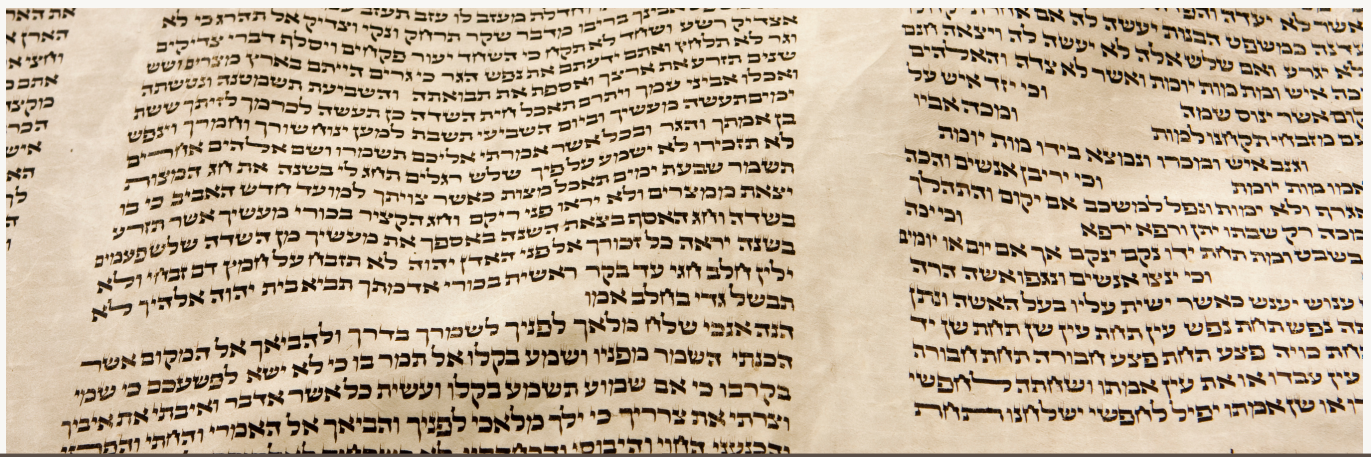 אשר לא יעדה והפדה
כמשפט הבנות יעשה לה אם אחרת
לא יגרע ואם שלש אלה לא יעשה לה ויצאה חנם
מכה איש ומת מות יומת ואשר לא צדה והאלהים
אשר ינוס שמה וכי יזד איש על
עם מזבחי תקחנו למות ומכה אביו
וגנב איש ומכרו ונמצא בידו מות יומת
מות יומת וכי יריבן אנשים והכה
ולא ימות ונפל למשכב אם יקום והתהלך
רק שבתו יתן ורפא ירפא וכי יכה
בשבט ומת תחת ידו נקם ינקם אך אם יום או יומים
וכי ינצו אנשים ונגפו אשה הרה
ענוש יענש כאשר ישית עליו בעל האשה ונתן
נפש תחת נפש עין תחת עין שן תחת שן יד
כויה פצע תחת פצע חבורה תחת חבורה
עין עבדו או את עין אמתו ושחתה לחפשי
או שן אמתו יפיל לחפשי ישלחנו תחת
אבינך בריבו מדבר שקר תרחק ונקי וצדיק אל תהרג כי לא
אצדיק רשע ושחד לא תקח כי השחד יעור פקחים ויסלף דברי צדיקים
וגר לא תלחץ ואתם ידעתם את נפש הגר כי גרים הייתם בארץ מצרים ושש
שנים תזרע את ארצך ואספת את תבואתה והשביעת תשמטנה ונטשתה
ואכלו אביני עמך ויתרם תאכל חית השדה כן תעשה לכרמך לזיתך ששת
ימים תעשה מעשיך וביום השביעי תשבת למען ינוח שורך וחמרך וינפש
בן אמתך והגר ובכל אשר אמרתי אליכם תשמרו ושם אלהים אחרים
לא תזכירו לא ישמע על פיך שלש רגלים תחג לי בשנה את חג המצות
תשמר שבעת ימים תאכל מצות כאשר צויתך למועד חדש האביב כי בו
יצאת ממצרים ולא יראו פני ריקם וחג הקציר בכורי מעשיך אשר תזרע
בשדה וחג האסף בצאת השנה באספך את מעשיך מן השדה שלש פעמים
בשנה יראה כל זכורך אל פני האדן יהוה לא תזבח על חמץ דם זבחי ולא
ילין חלב חגי עד בקר ראשית בכורי אדמתך תביא בית יהוה אלהיך לא
תבשל גדי בחלב אמו
הנה אנכי שלח מלאך לפניך לשמרך בדרך ולהביאך אל המקום אשר
הכנתי השמר מפניו ושמע בקלו אל תמר בו כי לא ישא לפשעכם כי שמי
בקרבו כי אם שמוע תשמע בקלו ועשית כל אשר אדבר ואיבתי את איביך
וצרתי את צרריך כי ילך מלאכי לפניך והביאך אל האמרי והחתי והפרזי
והכנעני החוי והיבוסי
הארץ
אתם